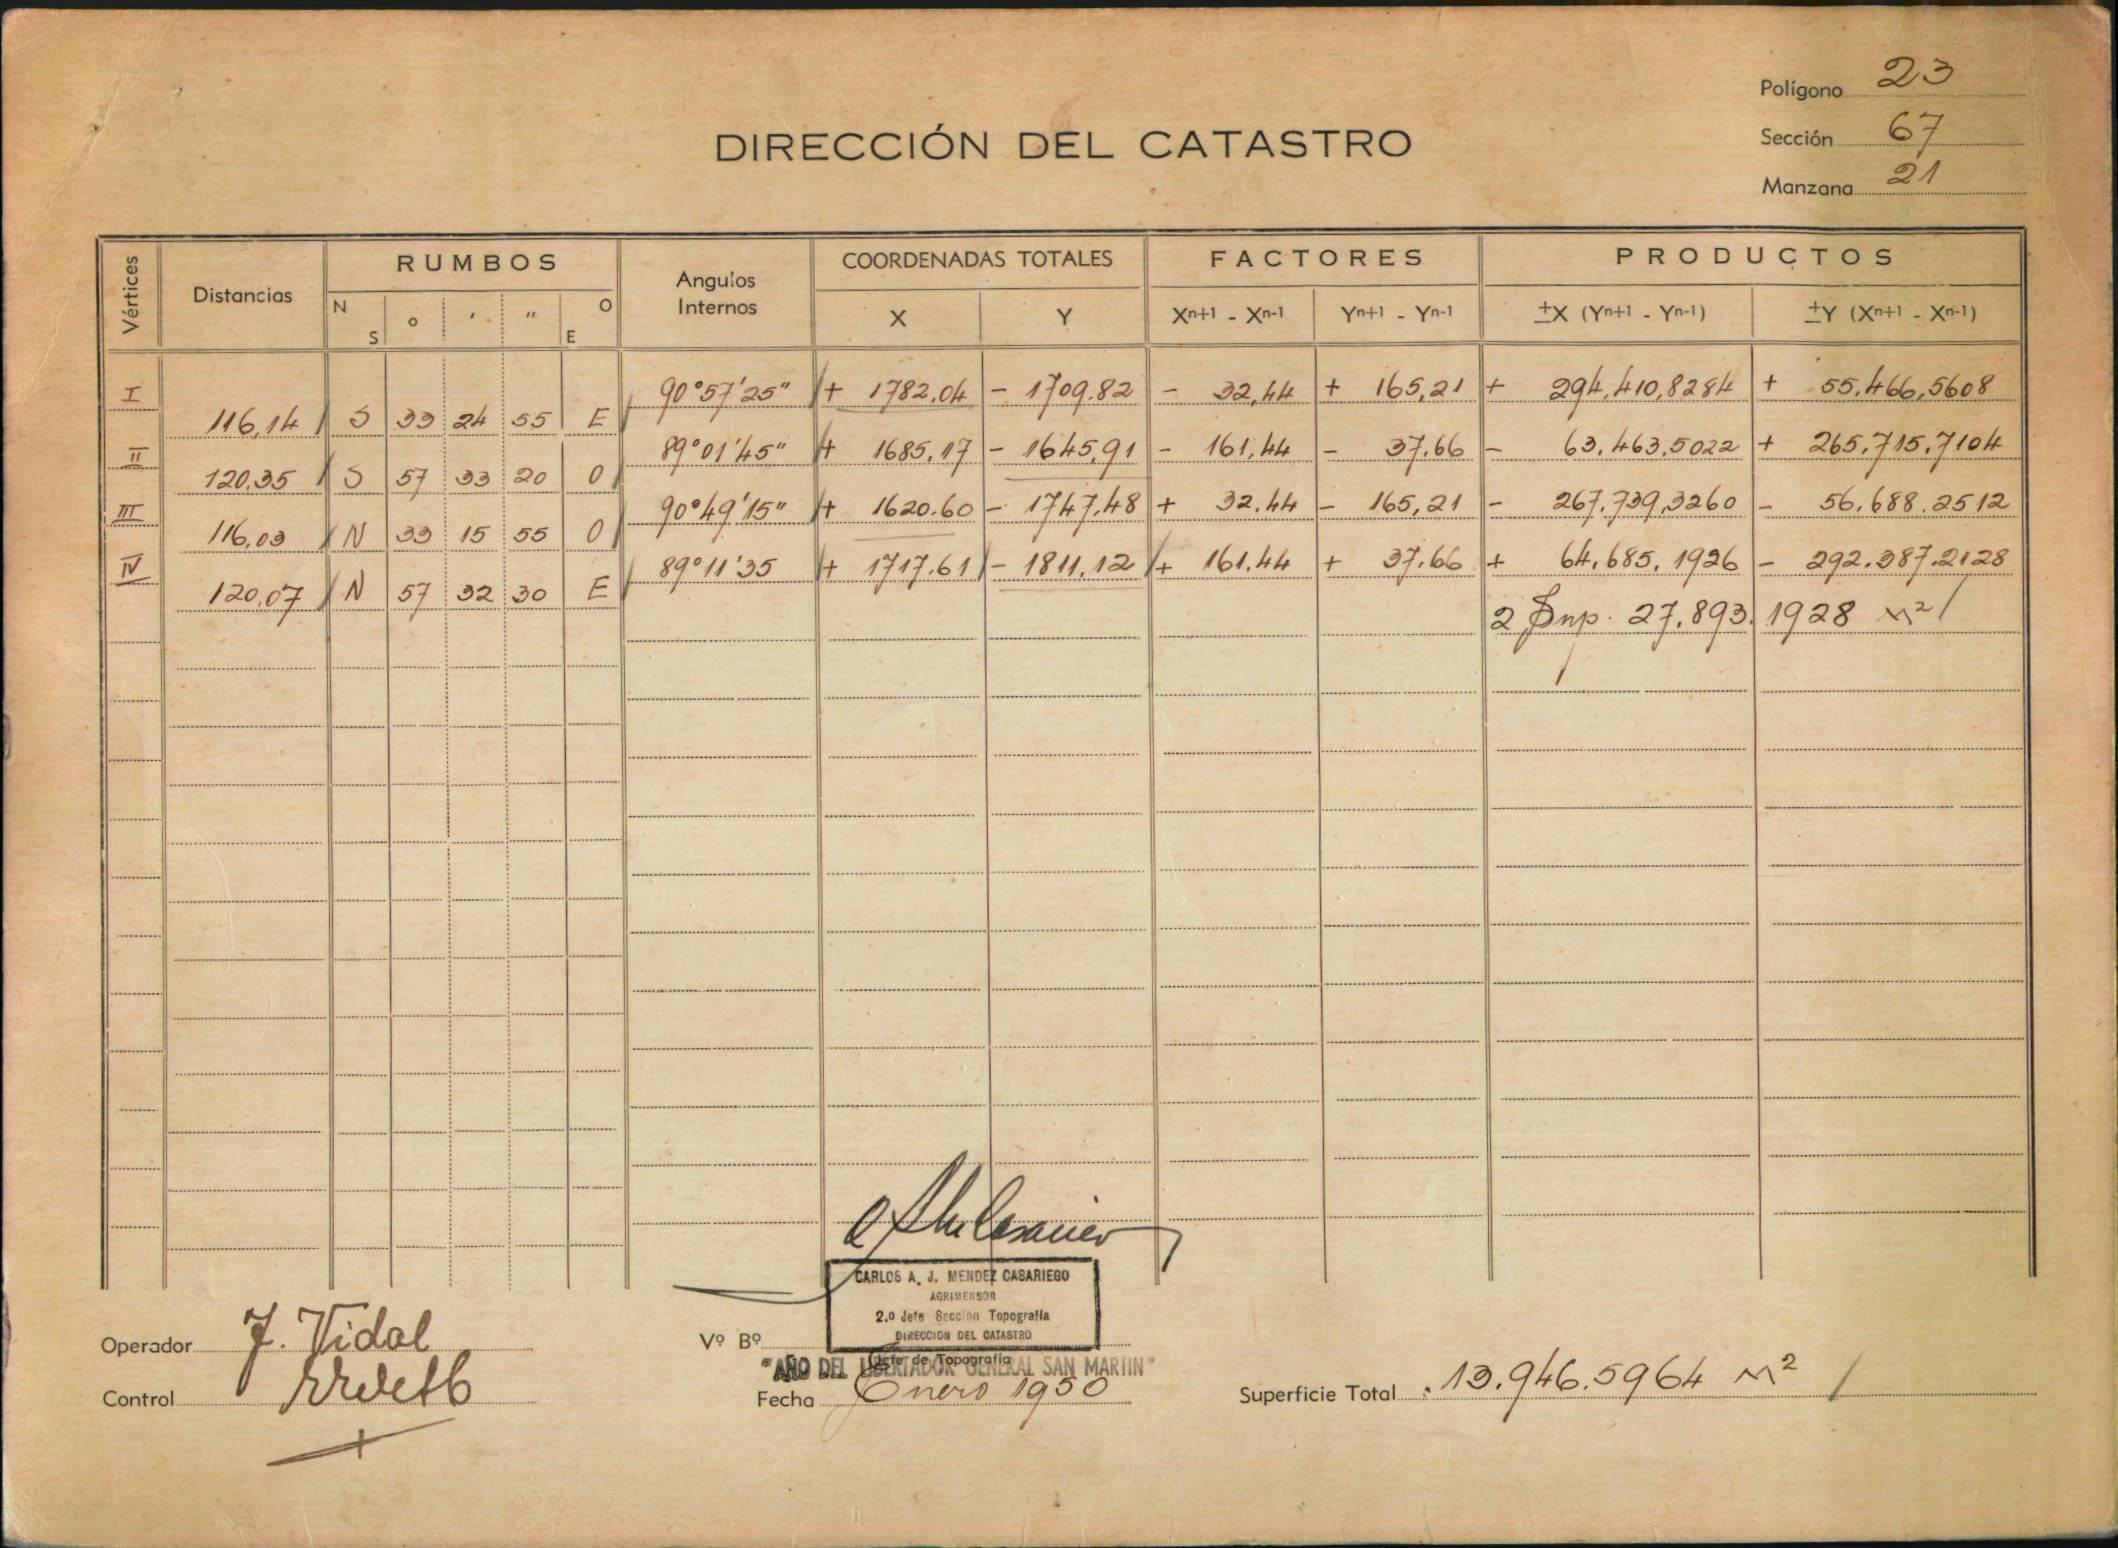 Polígono 23
DIRECCIÓN DEL CATASTRO
Sección 67
Manzana 21
Vértices
Distancias
RUMBOS
N S ° ' " O E
Angulos Internos
COORDENADAS TOTALES
X Y
FACTORES
Xn+1 - Xn-1 Yn+1 - Yn-1
PRODUCTOS
±X (Yn+1 - Yn-1) ±Y (Xn+1 - Xn-1)
I 90°57'25" + 1782.04 - 1709.82 - 32,44 + 165,21 + 294,410,8284 + 55.466,5608
116,14 S 33 24 55 E
II 89°01'45" + 1685,17 - 1645,91 - 161,44 - 37.66 - 63.463,5022 + 265.715.7104
120,35 S 57 33 20 O
III 90°49'15" + 1620.60 - 1747,48 + 32,44 - 165,21 - 267.739,3260 - 56.688.2512
116,03 N 33 15 55 O
IV 89°11'35 + 1717.61 - 1811,12 + 161.44 + 37.66 + 64,685,1926 - 292.387.2128
120,07 N 57 32 30 E
2 Sup. 27.893.1928 M²
CARLOS A. J. MENDEZ CASARIEGO
AGRIMENSOR
2.º Jefe Sección Topografía
DIRECCION DEL CATASTRO
Operador J. Vidal
Vº Bº
Jefe de Topografía
"AÑO DEL LIBERTADOR GENERAL SAN MARTIN"
Control
Fecha Enero 1950
Superficie Total 13.946.5964 M²